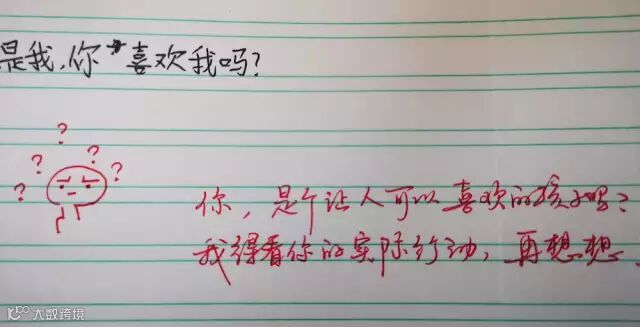 是我,你喜欢我吗?
? ? ? ? ?
你,是个让人可以喜欢的孩子吗?
我得看你的实际行动,再想想
大数跨境